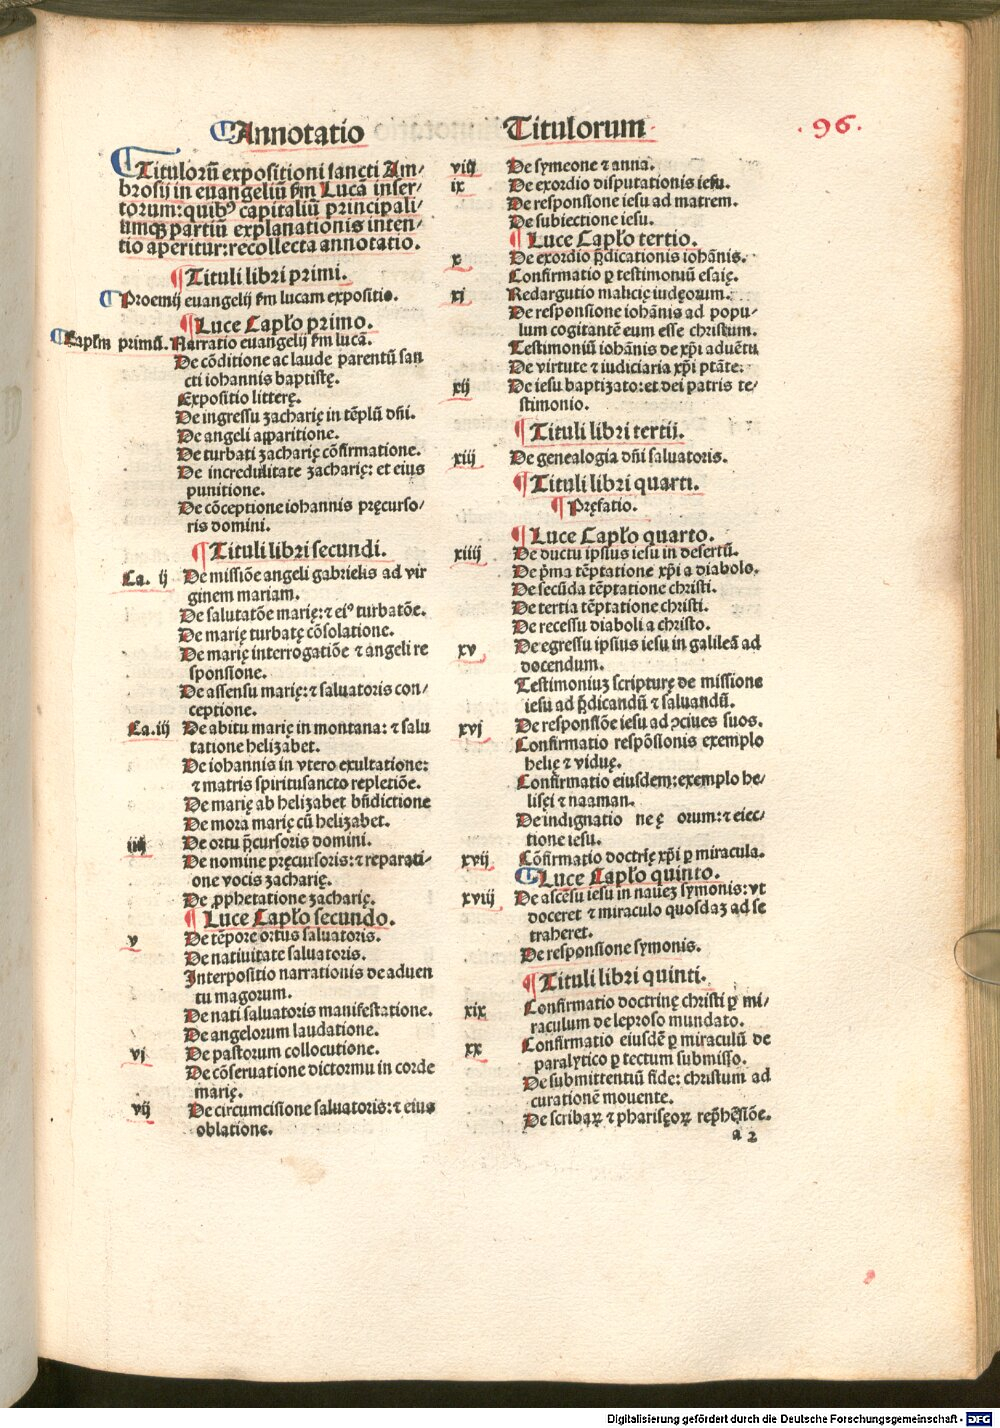 Annotatio Titulorum
.96.
Titulorū expositioni sancti Am/
brosij in euangeliū ẜm Lucā inser/
torum: quibꝰ capitaliū principali/
umqꝫ partiū explanationis inten/
tio aperitur: recollecta annotatio.
¶ Tituli libri primi.
Proemij euangelij ẜm lucam expositio.
¶ Luce Capło primo.
Caplm primū. Narratio euangelij ẜm lucā.
De cōditione ac laude parentū san
cti iohannis baptistę.
Expositio litterę.
De ingressu zacharię in tēplū dñi.
De angeli apparitione.
De turbati zacharię cōfirmatione.
De incredulitate zacharię: et eius
punitione.
De cōceptione iohannis pręcurso/
ris domini.
¶ Tituli libri secundi.
Ca. ij De missiōe angeli gabrielis ad vir
ginem mariam.
De salutatōe marię: ⁊ eiꝰ turbatōe.
De marię turbatę cōsolatione.
De marię interrogatiōe ⁊ angeli re
sponsione.
De assensu marię: ⁊ saluatoris con/
ceptione.
Ca. iij De abitu marię in montana: ⁊ salu
tatione helizabet.
De iohannis in vtero exultatione:
⁊ matris spiritusancto repletiōe.
De marię ab helizabet bñdictione
De mora marię cū helizabet.
iiij De ortu p̄cursoris domini.
De nomine pręcursoris: ⁊ reparati-
one vocis zacharię.
De ꝓphetatione zacharię.
¶ Luce Capło secundo.
v De tēpore ortus saluatoris.
De natiuitate saluatoris.
Interpositio narrationis de aduen
tu magorum.
De nati saluatoris manifestatione.
De angelorum laudatione.
vj De pastorum collocutione.
De cōseruatione dictormu in corde
marię.
vij De circumcisione saluatoris: ⁊ eius
oblatione.
viij De symeone ⁊ anna.
ix De exordio disputationis iesu.
De responsione iesu ad matrem.
De subiectione iesu.
¶ Luce Capło tertio.
x De exordio p̄dicationis iohānis.
Confirmatio ꝑ testimoniū esaię.
xj Redargutio malicię iudęorum.
De responsione iohānis ad popu/
lum cogitantē eum esse christum.
Testimoniū iohānis de xp̄i aduētu
De virtute ⁊ iudiciaria xp̄i ptāte.
xij De iesu baptizato: et dei patris te/
stimonio.
¶ Tituli libri tertij.
xiij De genealogia dñi saluatoris.
¶ Tituli libri quarti.
¶ Pręfatio.
¶ Luce Capło quarto.
xiiij De ductu ipsius iesu in desertū.
De p̄ma tēptatione xp̄i a diabolo.
De secūda tēptatione christi.
De tertia tēptatione christi.
De recessu diaboli a christo.
xv De egressu ipsius iesu in galileā ad
docendum.
Testimoniuꝫ scripturę de missione
iesu ad p̄dicandū ⁊ saluandū.
xvj De responsiōe iesu ad ↄciues suos.
Confirmatio respōsionis exemplo
helię ⁊ viduę.
Confirmatio eiusdem: exemplo he/
lisęi ⁊ naaman.
De indignatio ne ę orum: ⁊ eiec/
tione iesu.
xvij Cōfirmatio doctrię xp̄i ꝑ miracula.
Luce Capło quinto.
xviij De ascēsu iesu in naueꝫ symonis: vt
doceret ⁊ miraculo quosdaꝫ ad se
traheret.
De responsione symonis.
¶ Tituli libri quinti.
xix Confirmatio doctrinę christi ꝑ mi/
raculum de leproso mundato.
xx Confirmatio eiusdē ꝑ miraculū de
paralytico ꝑ tectum submisso.
De submittentiū fide: christum ad
curationēm mouente.
De scribaꝝ ⁊ pharisęoꝝ rep̄hēsiōe.
a 2
Digitalisierung gefördert durch die Deutsche Forschungsgemeinschaft - DFG